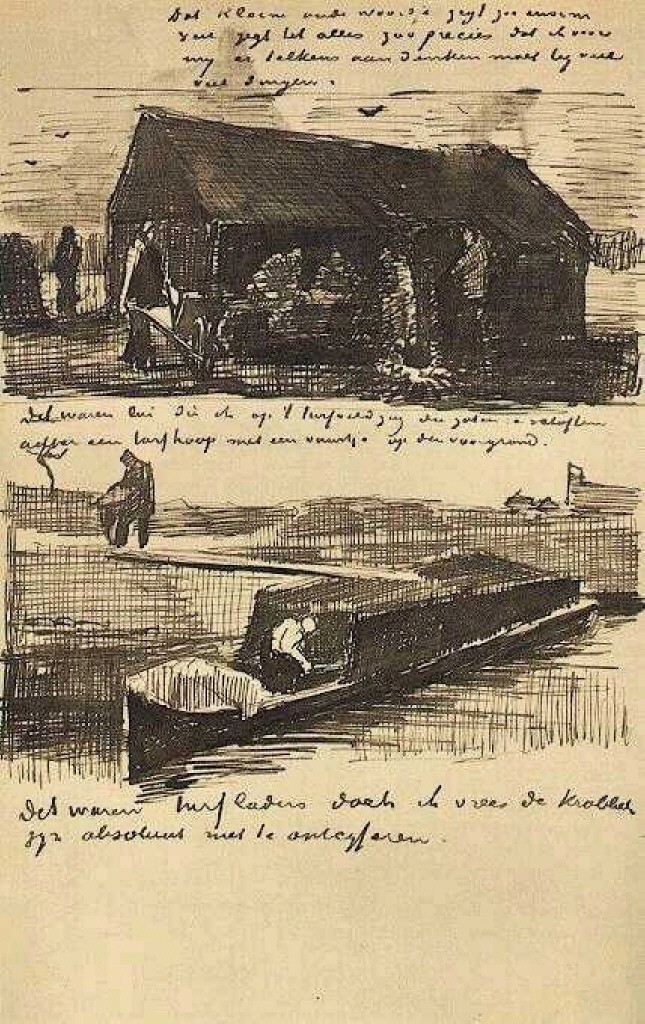 Dat kleine oude woordje zegt zoo enorm
veel zegt het alles zoo precies dat ik voor
my er telkens aan denken moet by veel
veel dingen.
Dit waren lui die ik op 't turfveld zag die zaten te schoften
achter een turfhoop met een vuurtje op den voorgrond.
Dit waren turfladers doch ik vrees de krabbels
zyn absoluut niet te ontcyferen.